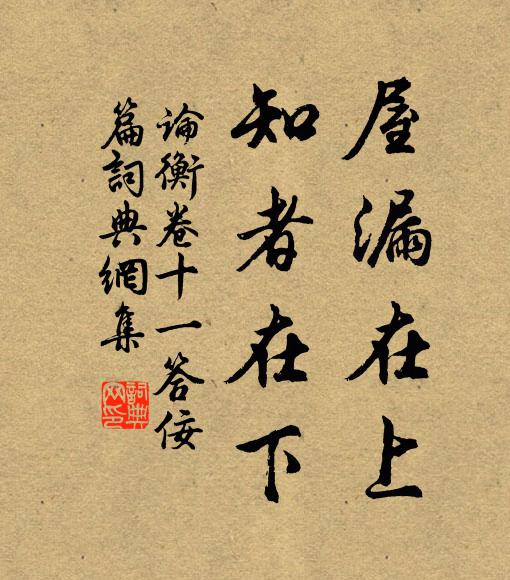 屋漏在上
知者在下
論衡卷十一答佞
篇詞典網集
詞典
网印